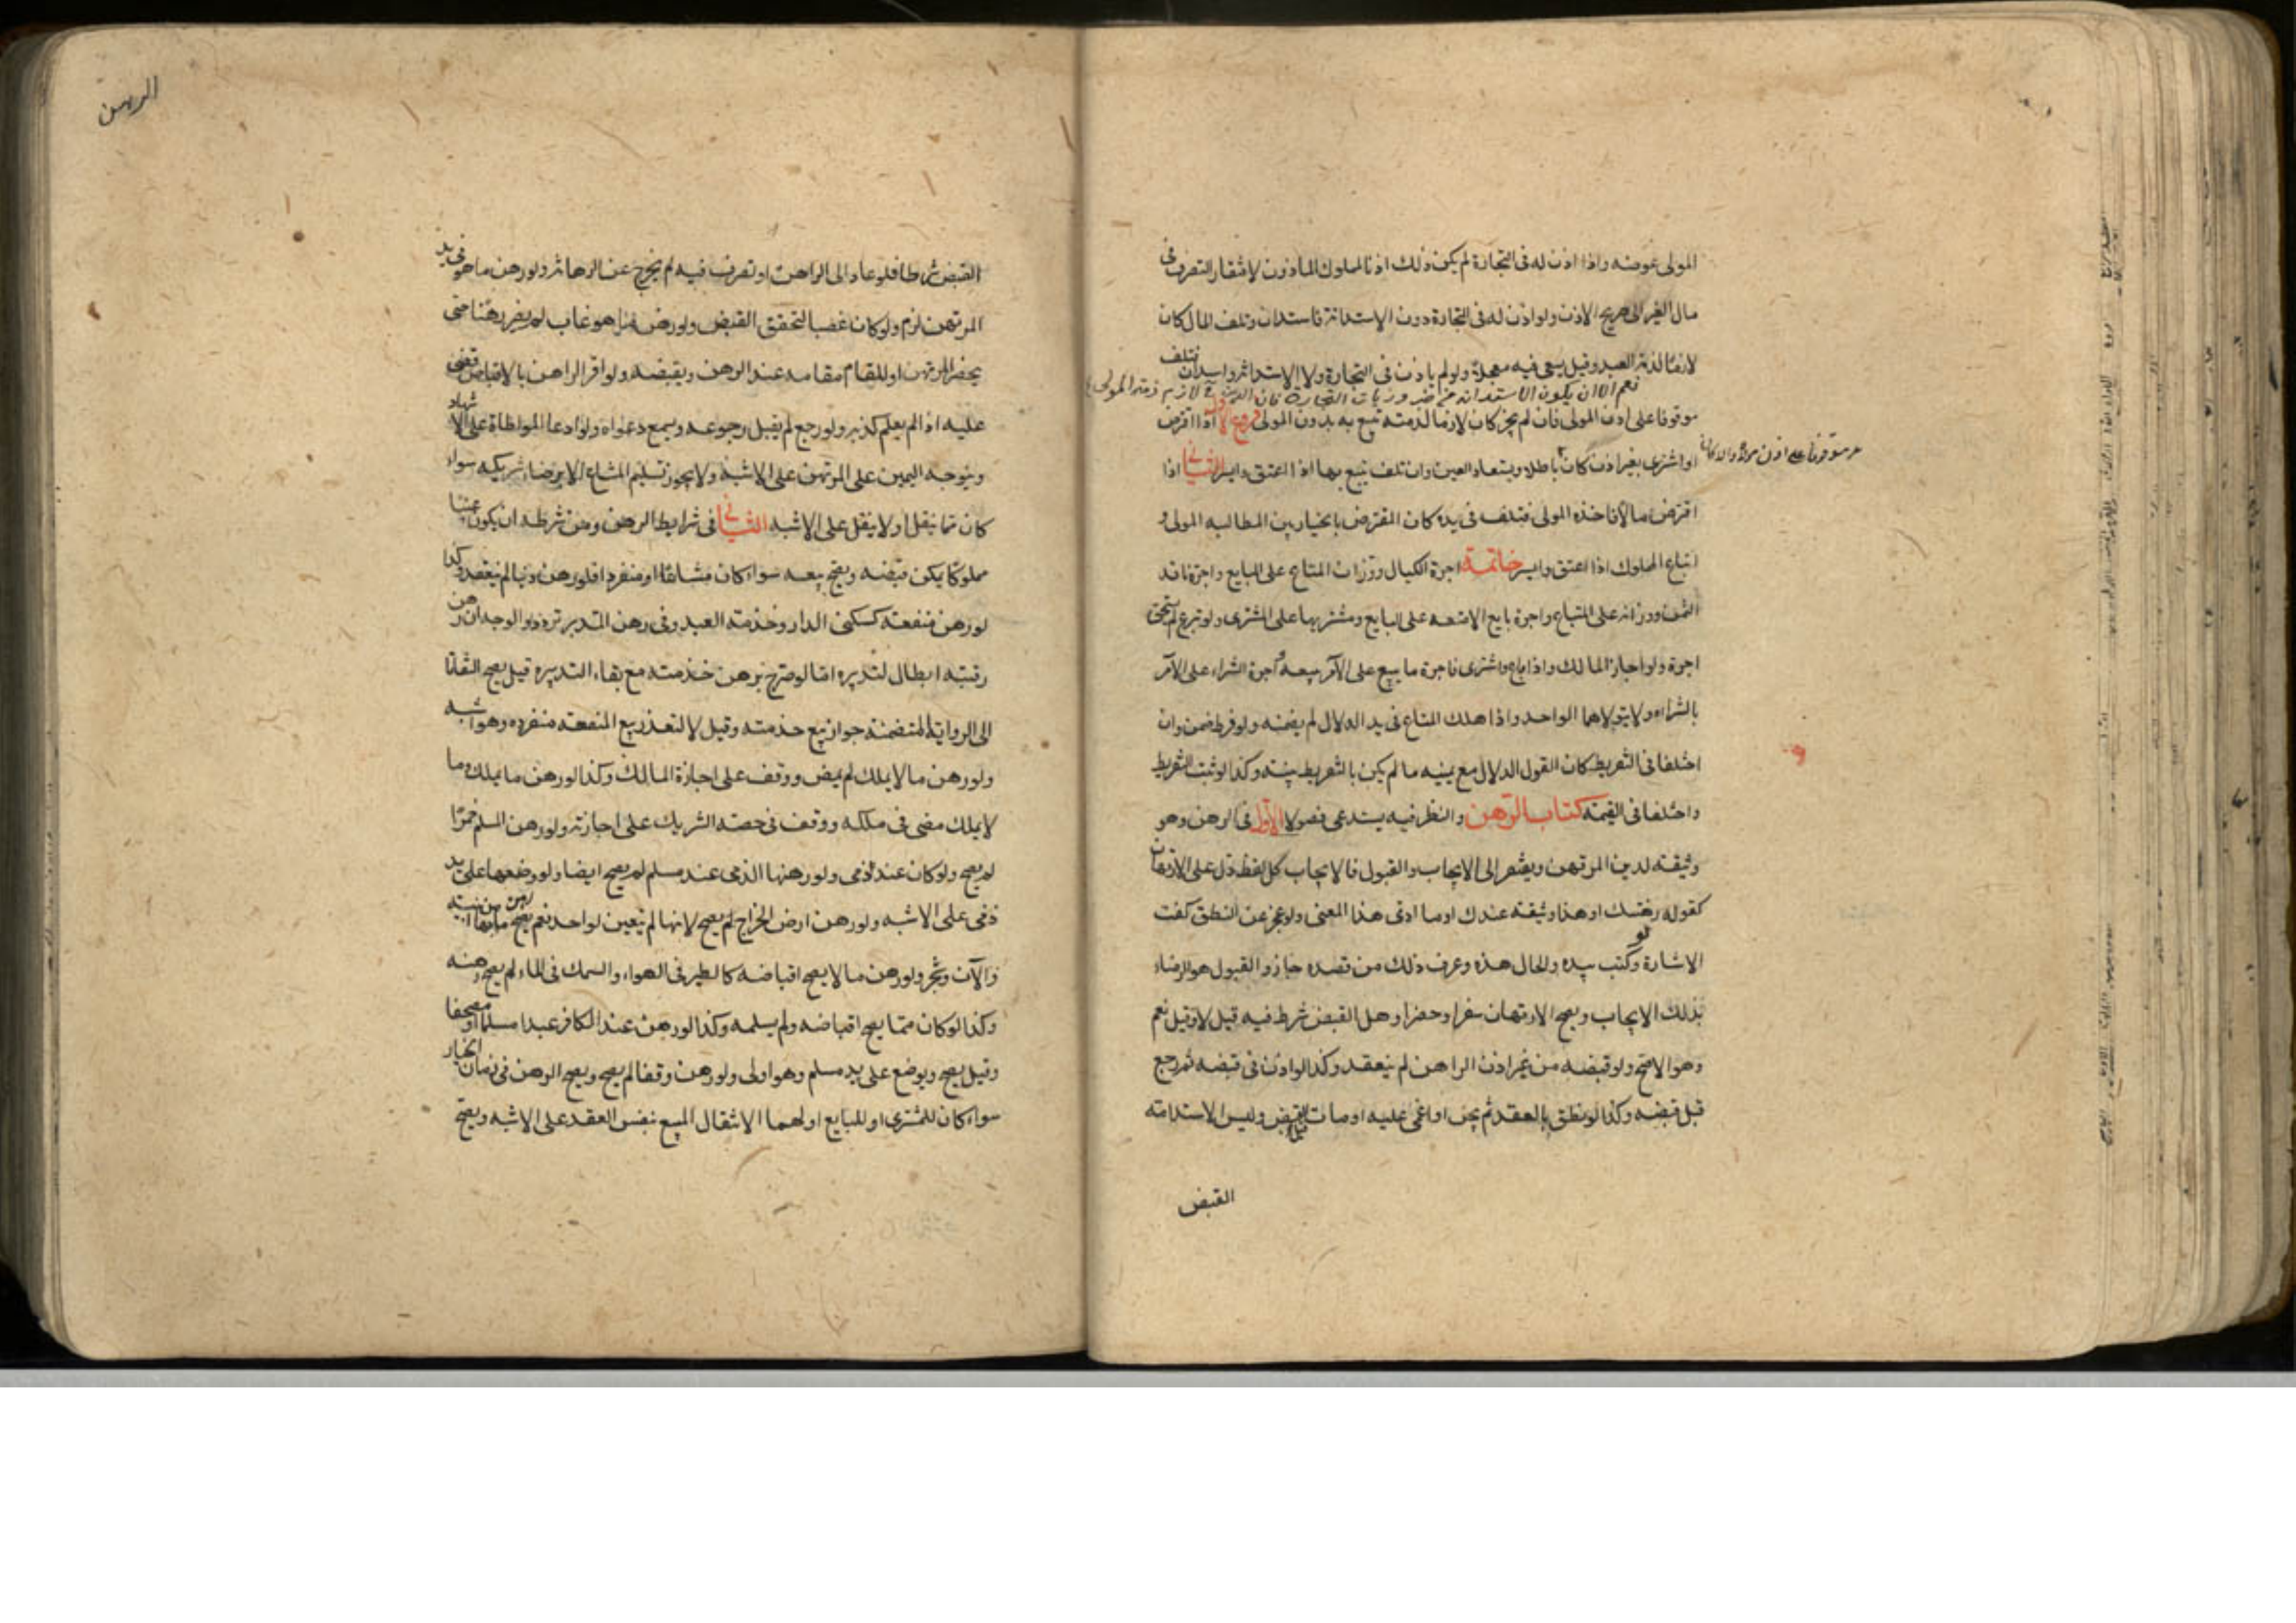 المولى عوضه واذا اذن له فى التجارة لم يكن ذلك اذنا لمملوك الماذون لافتقار التصرف فى
مال الغير الى صريح الاذن ولو اذن له فى التجارة دون الاستدانة فاستدان وتلف المال كان
لازما لذمة العبد وقيل يسعى فيه معجلا ولو لم ياذن فى التجارة ولا الاستدانة واستدان فتلف
نعم الا ان يكون الاستدانه من ضروريات التجارة فان الدين ح لازم ذمة المولى
موقوفا على اذن المولى فان لم يجز كان لازما لذمته تتبع به بدون المولى فروع الاول اذا اقترض
او اشترى بغير اذن كان باطلا ويستعاد العين وان تلف تتبع بها اذا اعتق وايسر الثانى اذا
موقوفا على اذن مولاه والا كان
اقترض مالا فاخذه المولى فتلف فى يده كان المقرض بالخيار بين المطالبه المولى و
اتباع المملوك اذا اعتق وايسر خاتمة اجرة الكيال ووزان المتاع على البايع واجرة ناقد
الثمن ووزانه على المبتاع واجرة بايع الامتعه على البايع ومشتريها على المشترى ولو تبرع لم يستحق
اجرة ولو اجاز المالك واذا باع واشترى فاجرة ما يبيع على الآمر ببيعه واجرة الشراء على الآمر
بالشراء ولا يتولاهما الواحد واذا هلك المتاع فى يد الدلال لم يضمنه ولو فرط ضمن وان
اختلفا فى التفريط كان القول الدلال مع يمينه ما لم يكن بالتفريط بينته وكذا لو ثبت التفريط
واختلفا فى القيمة كتاب الرهن والنظر فيه يستدعى فصولا الاول فى الرهن وهو
وثيقة لدين المرتهن ويفتقر الى الايجاب والقبول فالايجاب كل لفظ دل على الارتهان
كقوله رهنتك او هذا وثيقة عندك او ما ادى هذا المعنى ولو عجز عن النطق كفت
الاشارة ولو كتب بيده والحال هذه وعرف ذلك من قصده جاز والقبول هو الرضاء
بذلك الايجاب ويصح الارتهان سفرا وحضرا وهل القبض شرط فيه قيل لا وقيل نعم
وهو الاصح ولو قبضه من غير اذن الراهن لم ينعقد وكذا لو اذن فى قبضه ثم رجع
قبل قبضه وكذا لو نطق بالعقد ثم جن او اغمى عليه او مات قبل القبض وليس الاستدامته
القبض
الرهن
القبض شرطا فلو عاد الى الراهن او تصرف فيه لم يخرج عن الرهانة ولو رهن ما هو فى يد
المرتهن لزم ولو كان غصبا لتحقق القبض ولو رهن ما هو غايب لم يصر رهنا حتى
يحضر المرتهن او القايم مقامه عند الرهن ويقبضه ولو اقر الراهن بالاقباض قضى
عليه اذا لم يعلم كذبه ولو رجع لم يقبل رجوعه ويسمع دعواه ولو ادعا المواطاة على الاشهاد
ويتوجه اليمين على المرتهن على الاشبه ولا يجوز تسليم المشاع الا برضاء شريكه سواء
كان مما ينقل او لا ينقل على الاشبه الثانى فى شرايط الرهن ومن شرطه ان يكون عينا
مملوكا يمكن قبضه ويصح بيعه سواء كان مشاعا او منفردا فلو رهن دينا لم ينعقد وكذا
لو رهن منفعة كسكنى الدار وخدمة العبد وفى رهن المدبر تردد والوجه ان رهن
رقبته ابطال لتدبيره اما لو صرح برهن خدمته مع بقاء التدبيره قيل يصح التفاتا
الى الرواية المتضمنة جواز بيع خدمته وقيل لا لتعذر بيع المنفعة منفرده وهو اشبه
ولو رهن ما لا يملك لم يمض ووقف على اجازة المالك وكذا لو رهن ما يملك وما
لا يملك مضى فى ملكه ووقف فى حصة الشريك على اجازته ولو رهن المسلم خمرا
لم يصح ولو كان عند ذمى ولو رهنها الذمى عند مسلم لم يصح ايضا ولو وضعها على يد
ذمى على الاشبه ولو رهن ارض الخراج لم يصح لانها لم تتعين لواحد نعم يصح رهن ما بها من ابنية
والآت وشجر ولو رهن ما لا يصح اقباضه كالطير فى الهواء والسمك فى الماء لم يصح رهنه
وكذا لو كان مما يصح اقباضه ولم يسلمه وكذا لو رهن عند الكافر عبدا مسلما او مصحفا
وقيل يصح ويوضع على يد مسلم وهو اولى ولو رهن وقفا لم يصح ويصح الرهن فى زمان الخيار
سواء كان للمشترى او للبايع او لهما الانتقال المبيع بنفس العقد على الاشبه ويصح